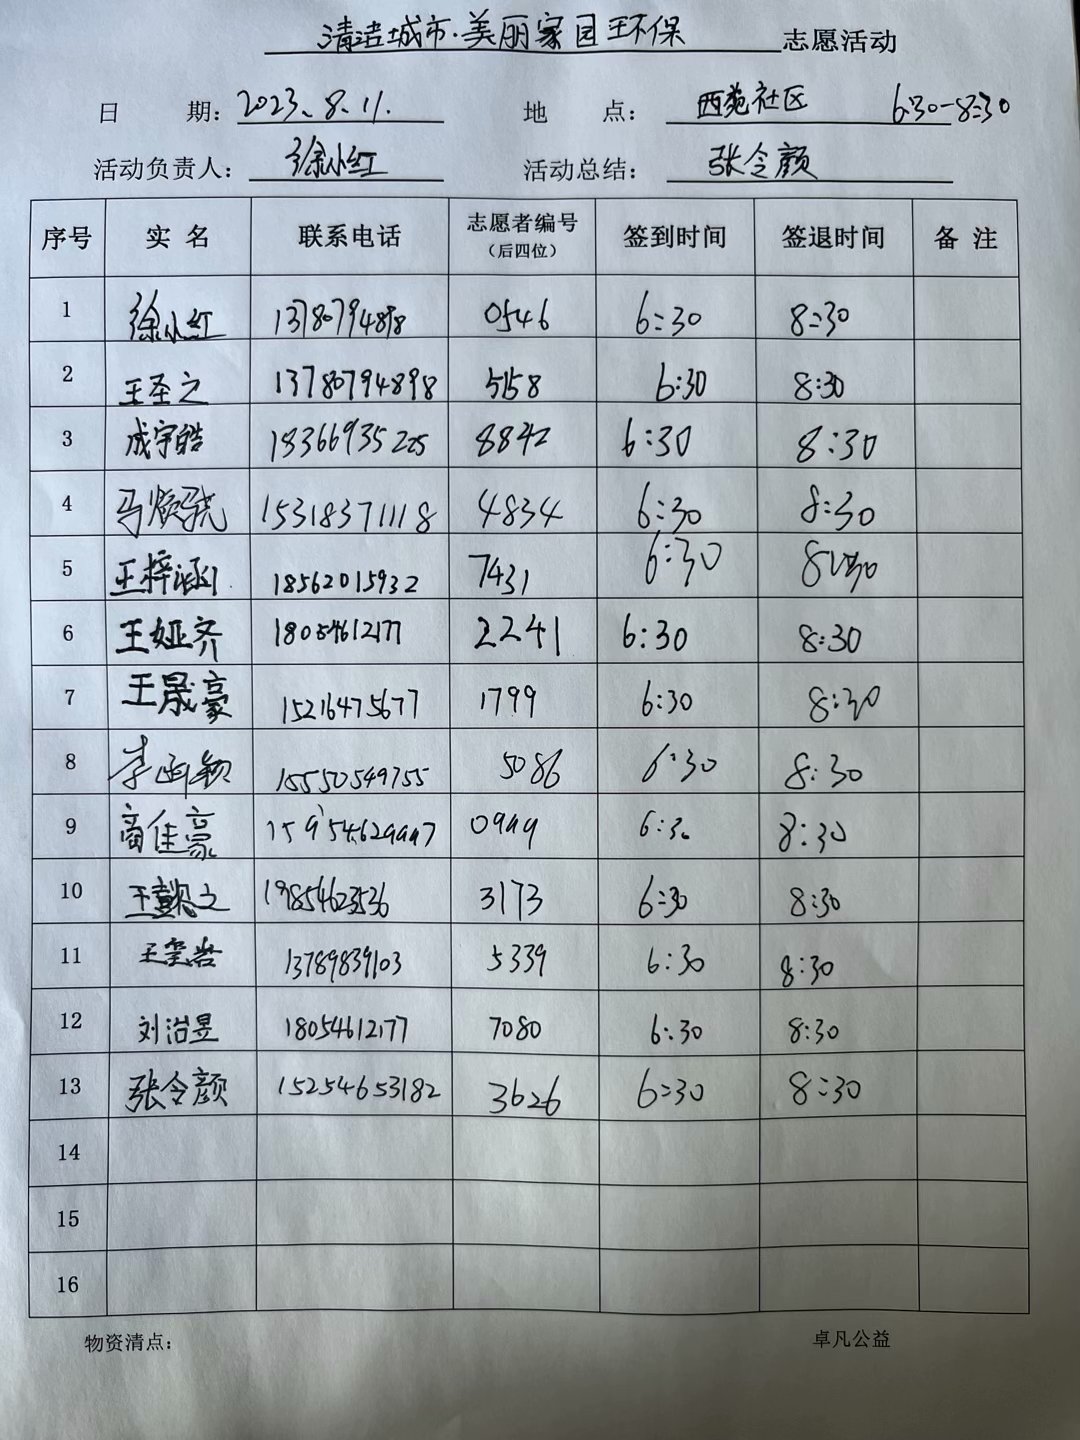 清洁城市·美丽家园环保 志愿活动
日 期: 2023.8.11. 地 点: 西苑社区 6:30-8:30
活动负责人: 徐小红 活动总结: 张令颜
序号 实名 联系电话 志愿者编号(后四位) 签到时间 签退时间 备注
1 徐小红 13780794898 0546 6:30 8:30
2 王圣之 13780794898 5158 6:30 8:30
3 成宇皓 18366935225 8842 6:30 8:30
4 15318371118 4834 6:30 8:30
5 王梓涵 18562015932 7431 6:30 8:30
6 王娅齐 18054612177 2241 6:30 8:30
7 王晟豪 15216475677 1799 6:30 8:30
8 李函颖 15550549755 5086 6:30 8:30
9 商佳豪 6:30 8:30
10 王懿之 19854623536 3173 6:30 8:30
11 13789839103 5339 6:30 8:30
12 刘治昱 18054612177 7080 6:30 8:30
13 张令颜 15254653182 3626 6:30 8:30
14
15
16
物资清点: 卓凡公益